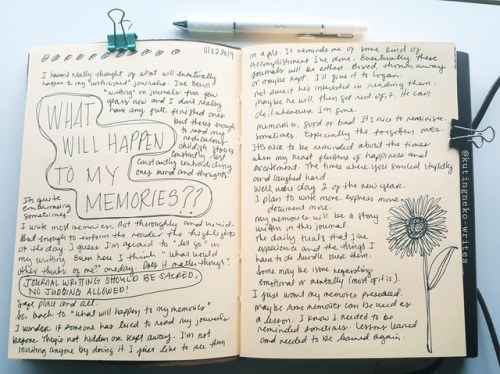 01022019
I haven't really thought of what will eventually
happen to my "unfinished" journals. I've been
"writing" in journals for few
years now and I don't really
have any full, finished ones
but there's enough
to read my
childish stories.
Constantly
Constantly contradicting
ones mind and thoughts.
WHAT
WILL HAPPEN
TO MY
MEMORIES??
It's quite
embarrassing
sometimes.
I write most memories. Not thoroughly and in-
But enough to inform the reader the highlights
of the day. I guess I'm afraid to "let go" in
my writing. Even now I think "what would
other thinks of me" one day. Does it matter though?
JOURNAL WRITING SHOULD BE SACRED,
NO JUDGING ALLOWED!
Safe place and all.
So, back to "what will happen to my memories"
I wonder if someone has tried to read my journals
before. They're not hidden or kept away. I'm not
inviting anyone by doing it I just like to see them
in a pile. It reminds me of some kind of
accomplishment I've done. Eventually these
journals will be either: Boxed, thrown away
or maybe kept. I'll give it to Logan.
not sure if he's interested in reading them.
maybe he will, then get rid of it. He can
do it whenever. I'm gone.
memories, good or bad. It's nice to reminisce
sometimes. Especially the forgotten ones.
It's nice to be reminded about the times
when my heart flutters of happiness and
excitement. The times when you smiled stupidly
and laughed hard.
Well we're day 2 of the new year.
I plan to write more, express more
document more.
my memories will be a story
written in this journal.
The daily trials that I've
experience and the things I
have to do hurdle over them.
Some may be issue regarding
emotional or mentally (most of it is).
I just want my memories preserved.
maybe some memories can be used as
a lesson. I know I needed to be
reminded sometimes. Lessons learned
and needed to be learned again.
@kutingneko-writes